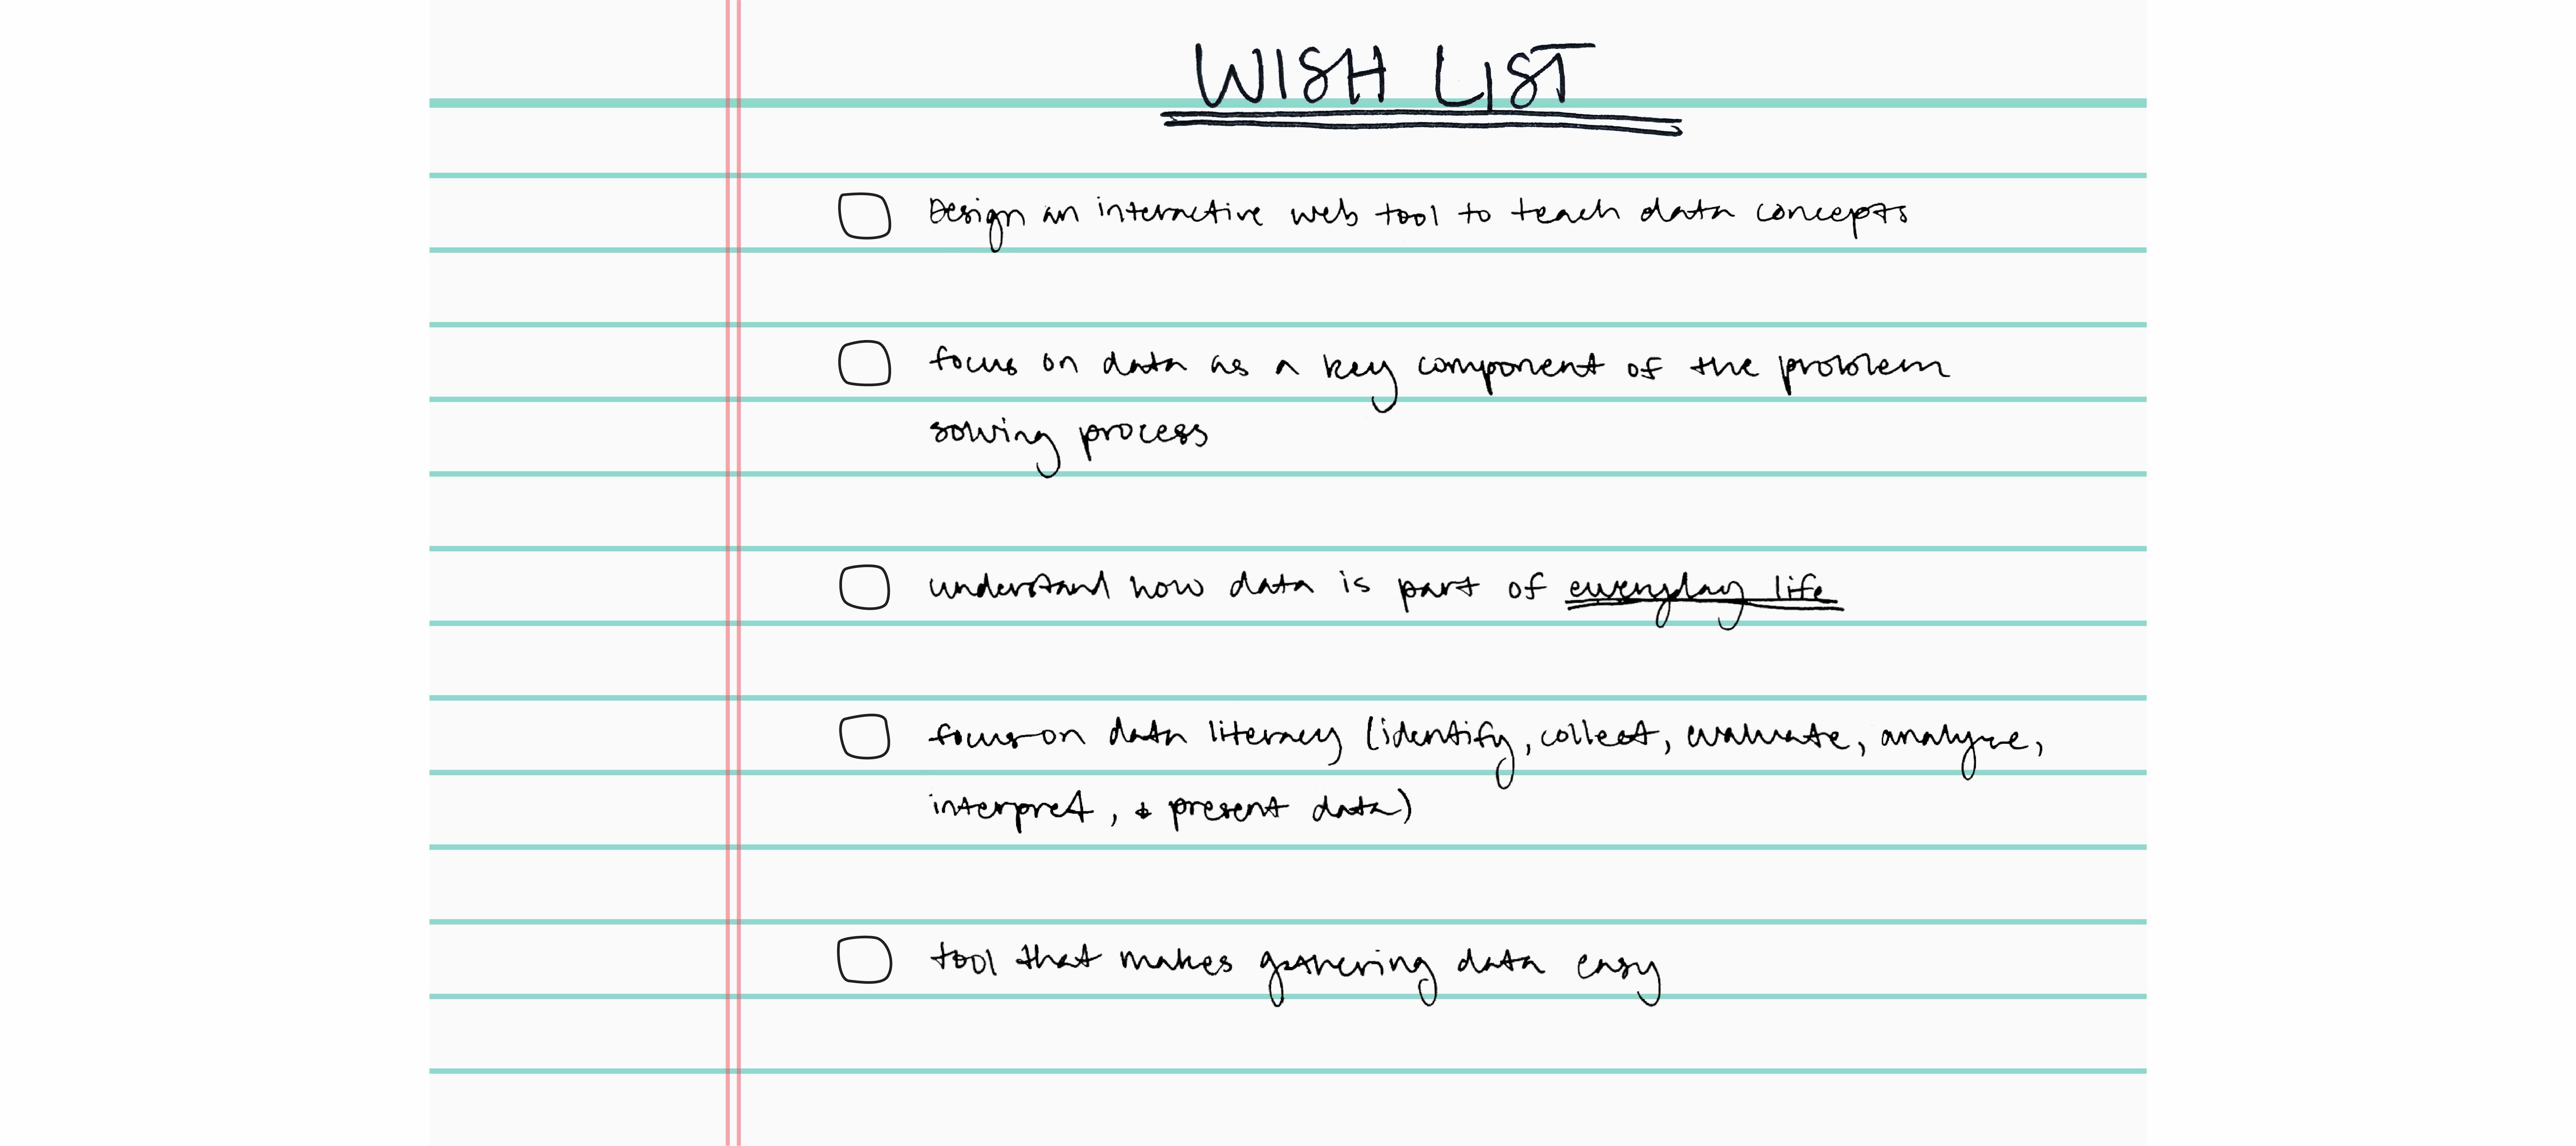 WISH LIST
Design an interactive web tool to teach data concepts
focus on data as a key component of the problem
solving process
understand how data is part of everyday life
focus on data literacy (identify, collect, evaluate, analyze,
interpret, & present data)
tool that makes gathering data easy